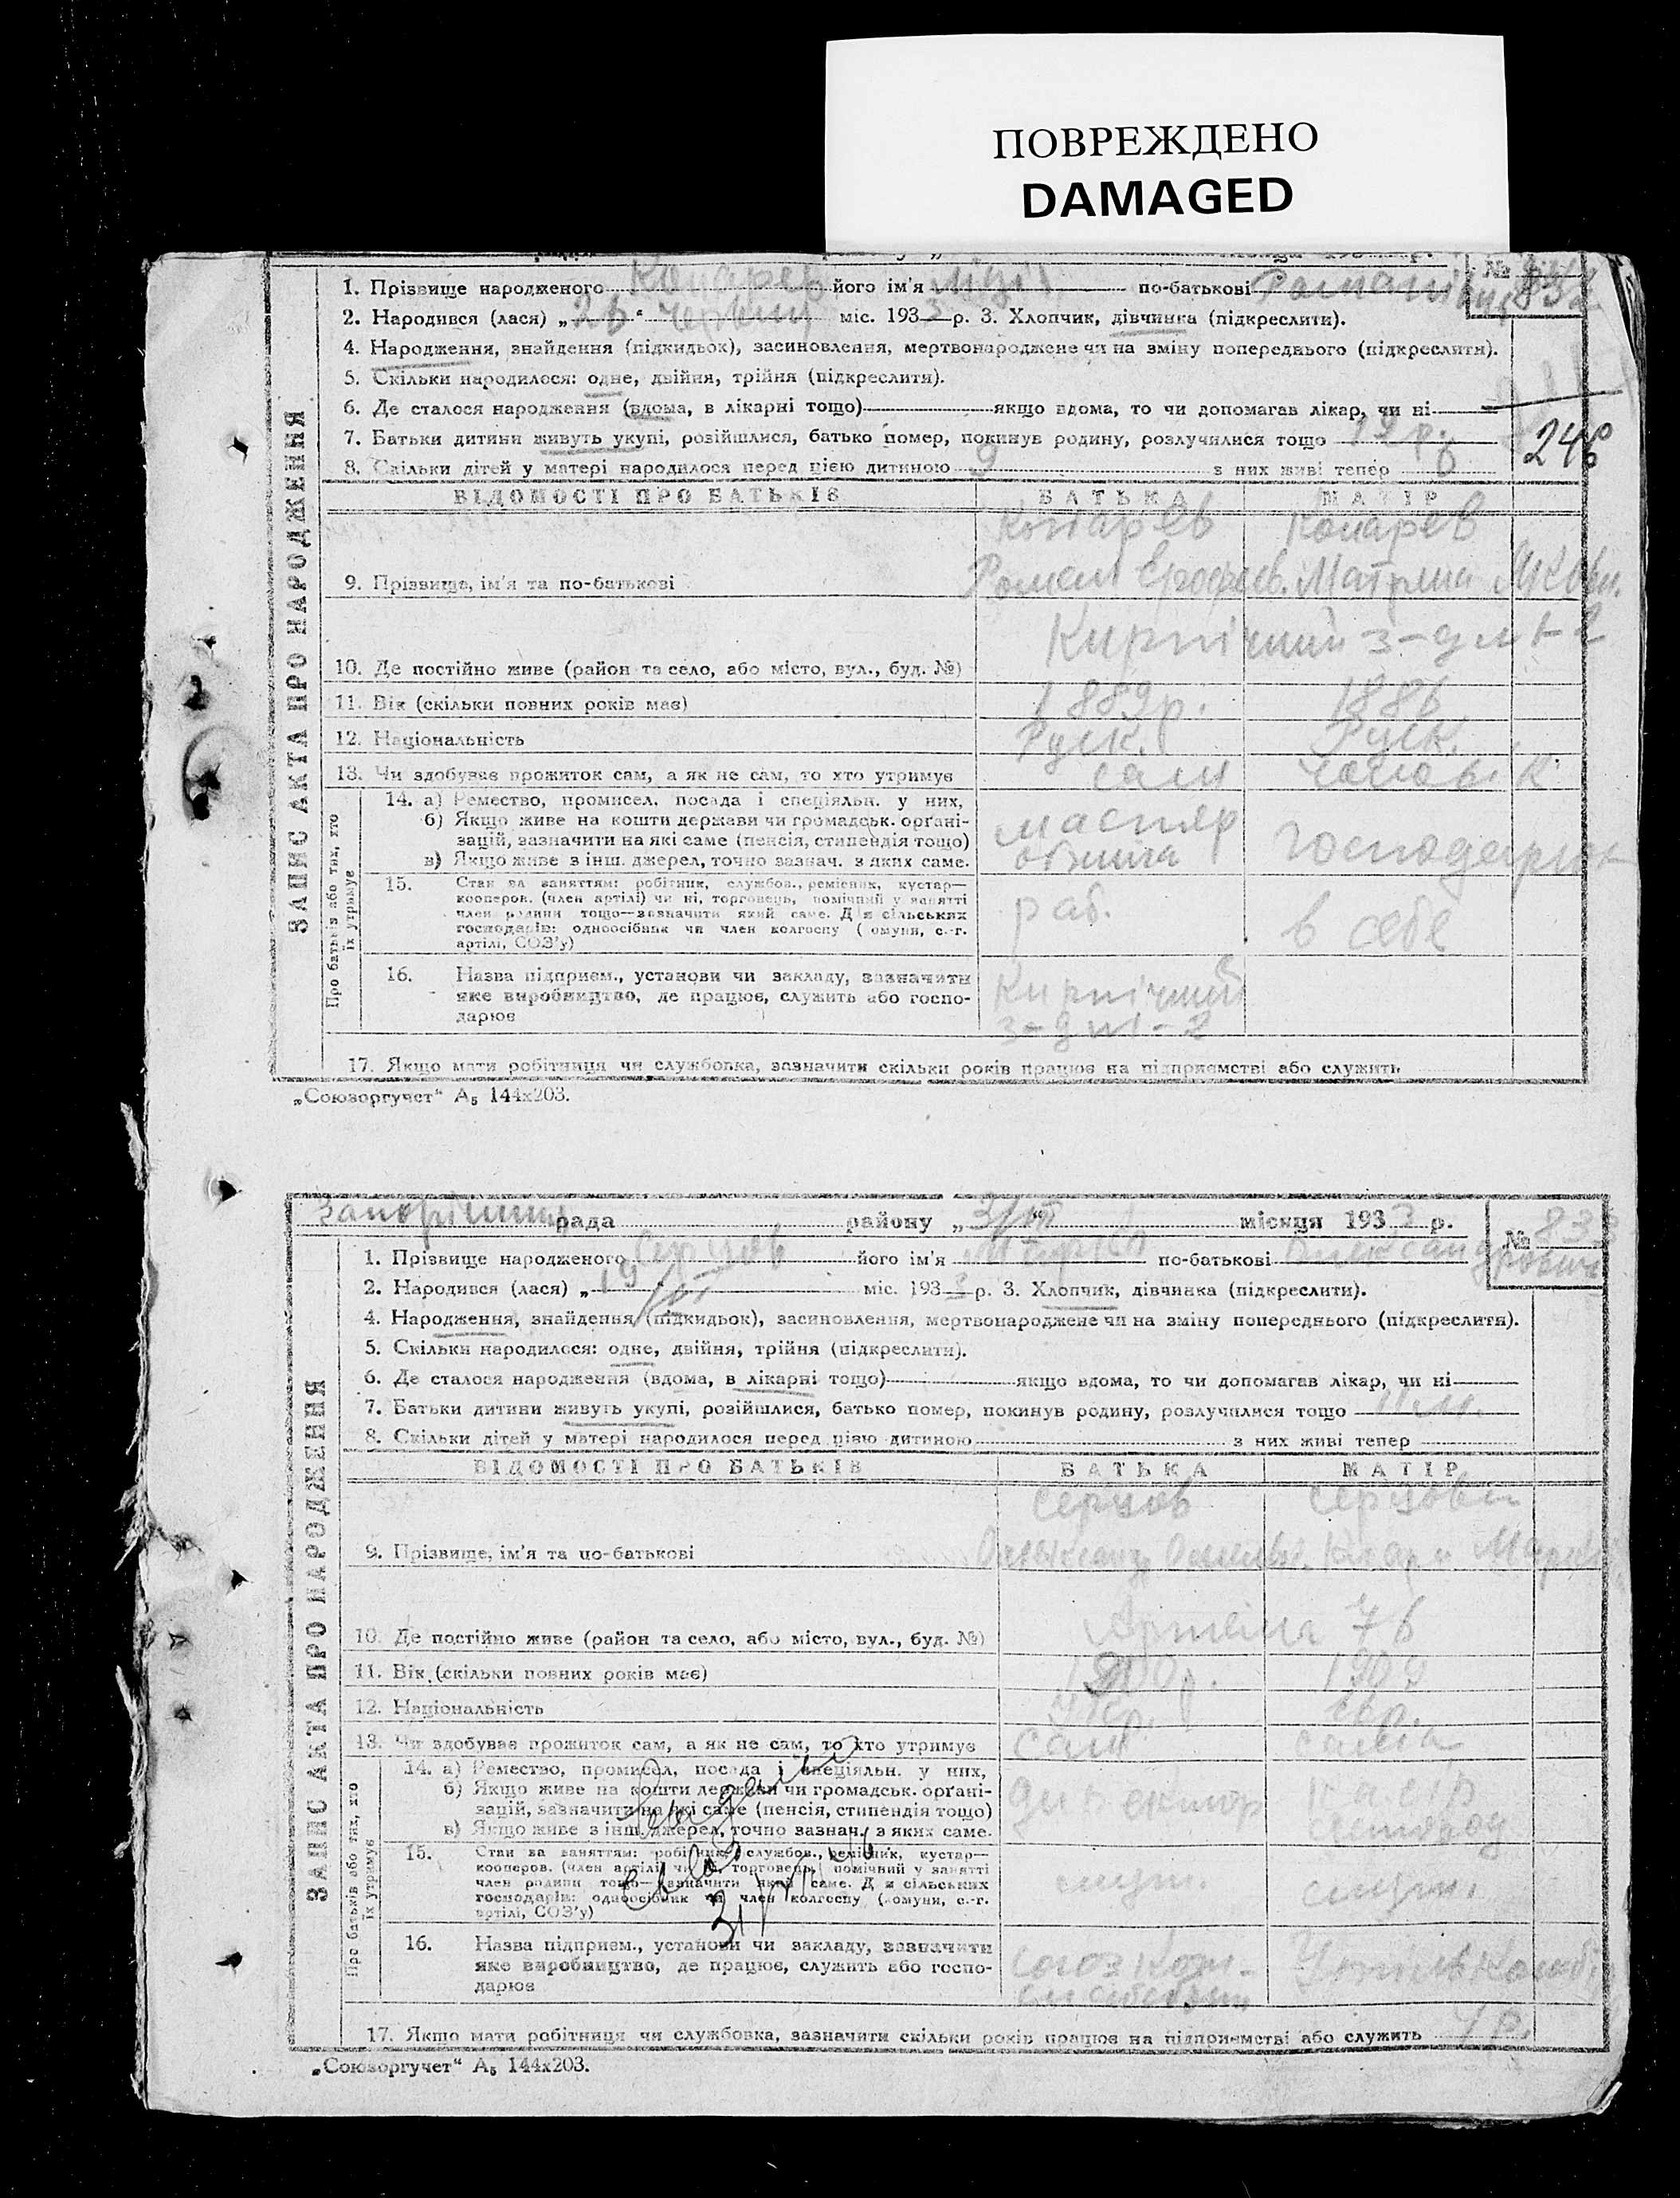 ПОВРЕЖДЕНО
DAMAGED
№ 832
1. Прізвище народженого Конарев його ім'я Лідія по-батькові Романівна
2. Народився (лася) „26“ червня міс. 1933 р. 3. Хлопчик, дівчинка (підкреслити).
4. Народження, знайдення (підкидьок), засиновлення, мертвонароджене чи на зміну попереднього (підкреслити).
5. Скільки народилося: одне, двійня, трійня (підкреслити).
6. Де сталося народження (вдома, в лікарні тощо) якщо вдома, то чи допомагав лікар, чи ні
7. Батьки дитини живуть укупі, розійшлися, батько помер, покинув родину, розлучилися тощо 19 р.
8. Скільки дітей у матері народилося перед цією дитиною 9 з них живі тепер 6
246
ЗАПИС АКТА ПРО НАРОДЖЕННЯ
ВІДОМОСТІ ПРО БАТЬКІВ БАТЬКА МАТІР
Конарев Конарев
9. Прізвище, ім'я та по-батькові Роман Ерофеев. Матрина Яковл.
10. Де постійно живе (район та село, або місто, вул., буд. №) Кирпічний з-д
11. Вік (скільки повних років має) 1889р. 1886
12. Національність Руск. Руск.
13. Чи здобуває прожиток сам, а як не сам, то хто утримує сам чоловік
Про батьків або тих, хто їх утримує
14. а) Ремество, промисел, посада і спеціяльн. у них,
б) Якщо живе на кошти держави чи громадськ. органі-
зацій, зазначити на які саме (пенсія, стипендія тощо)
в) Якщо живе з інш. джерел, точно зазнач. з яких саме.
мастяр
15. Стан за заняттям: робітник, службов., ремісник, кустар—
кооперов. (член артілі) чи ні, торговець, помічний у занятті
член родини тощо—зазначити який саме. Для сільських
господарів: одноосібник чи член колгоспу (комуни, с.-г.
артілі, СОЗ'у)
раб. в себе
16. Назва підприєм., установи чи закладу, зазначити
яке виробництво, де працює, служить або госпо-
дарює
Кирпічний
17. Якщо мати робітниця чи службовка, зазначити скільки років працює на підприємстві або служить
„Союзоргучет“ А₅ 144х203.
рада району „3/VII“ місяця 1933 р.
№ 833
1. Прізвище народженого його ім'я по-батькові Олександрович
2. Народився (лася) „19 міс. 1933 р. 3. Хлопчик, дівчинка (підкреслити).
4. Народження, знайдення (підкидьок), засиновлення, мертвонароджене чи на зміну попереднього (підкреслити).
5. Скільки народилося: одне, двійня, трійня (підкреслити).
6. Де сталося народження (вдома, в лікарні тощо) якщо вдома, то чи допомагав лікар, чи ні
7. Батьки дитини живуть укупі, розійшлися, батько помер, покинув родину, розлучилися тощо
8. Скільки дітей у матері народилося перед цією дитиною з них живі тепер
ЗАПИС АКТА ПРО НАРОДЖЕННЯ
ВІДОМОСТІ ПРО БАТЬКІВ БАТЬКА МАТІР
9. Прізвище, ім'я та по-батькові
10. Де постійно живе (район та село, або місто, вул., буд. №) Артема 76
11. Вік (скільки повних років має) 1900р. 1909
12. Національність
13. Чи здобуває прожиток сам, а як не сам, то хто утримує сам сама
Про батьків або тих, хто їх утримує
14. а) Ремество, промисел, посада і спеціяльн. у них,
б) Якщо живе на кошти держави чи громадськ. органі-
зацій, зазначити на які саме (пенсія, стипендія тощо)
в) Якщо живе з інш. джерел, точно зазнач. з яких саме.
директор касір
15. Стан за заняттям: робітник, службов., ремісник, кустар—
кооперов. (член артілі) чи ні, торговець, помічний у занятті
член родини тощо—зазначити який саме. Для сільських
господарів: одноосібник чи член колгоспу (комуни, с.-г.
артілі, СОЗ'у)
служ. служ.
16. Назва підприєм., установи чи закладу, зазначити
яке виробництво, де працює, служить або госпо-
дарює
17. Якщо мати робітниця чи службовка, зазначити скільки років працює на підприємстві або служить 4 р.
„Союзоргучет“ А₅ 144х203.